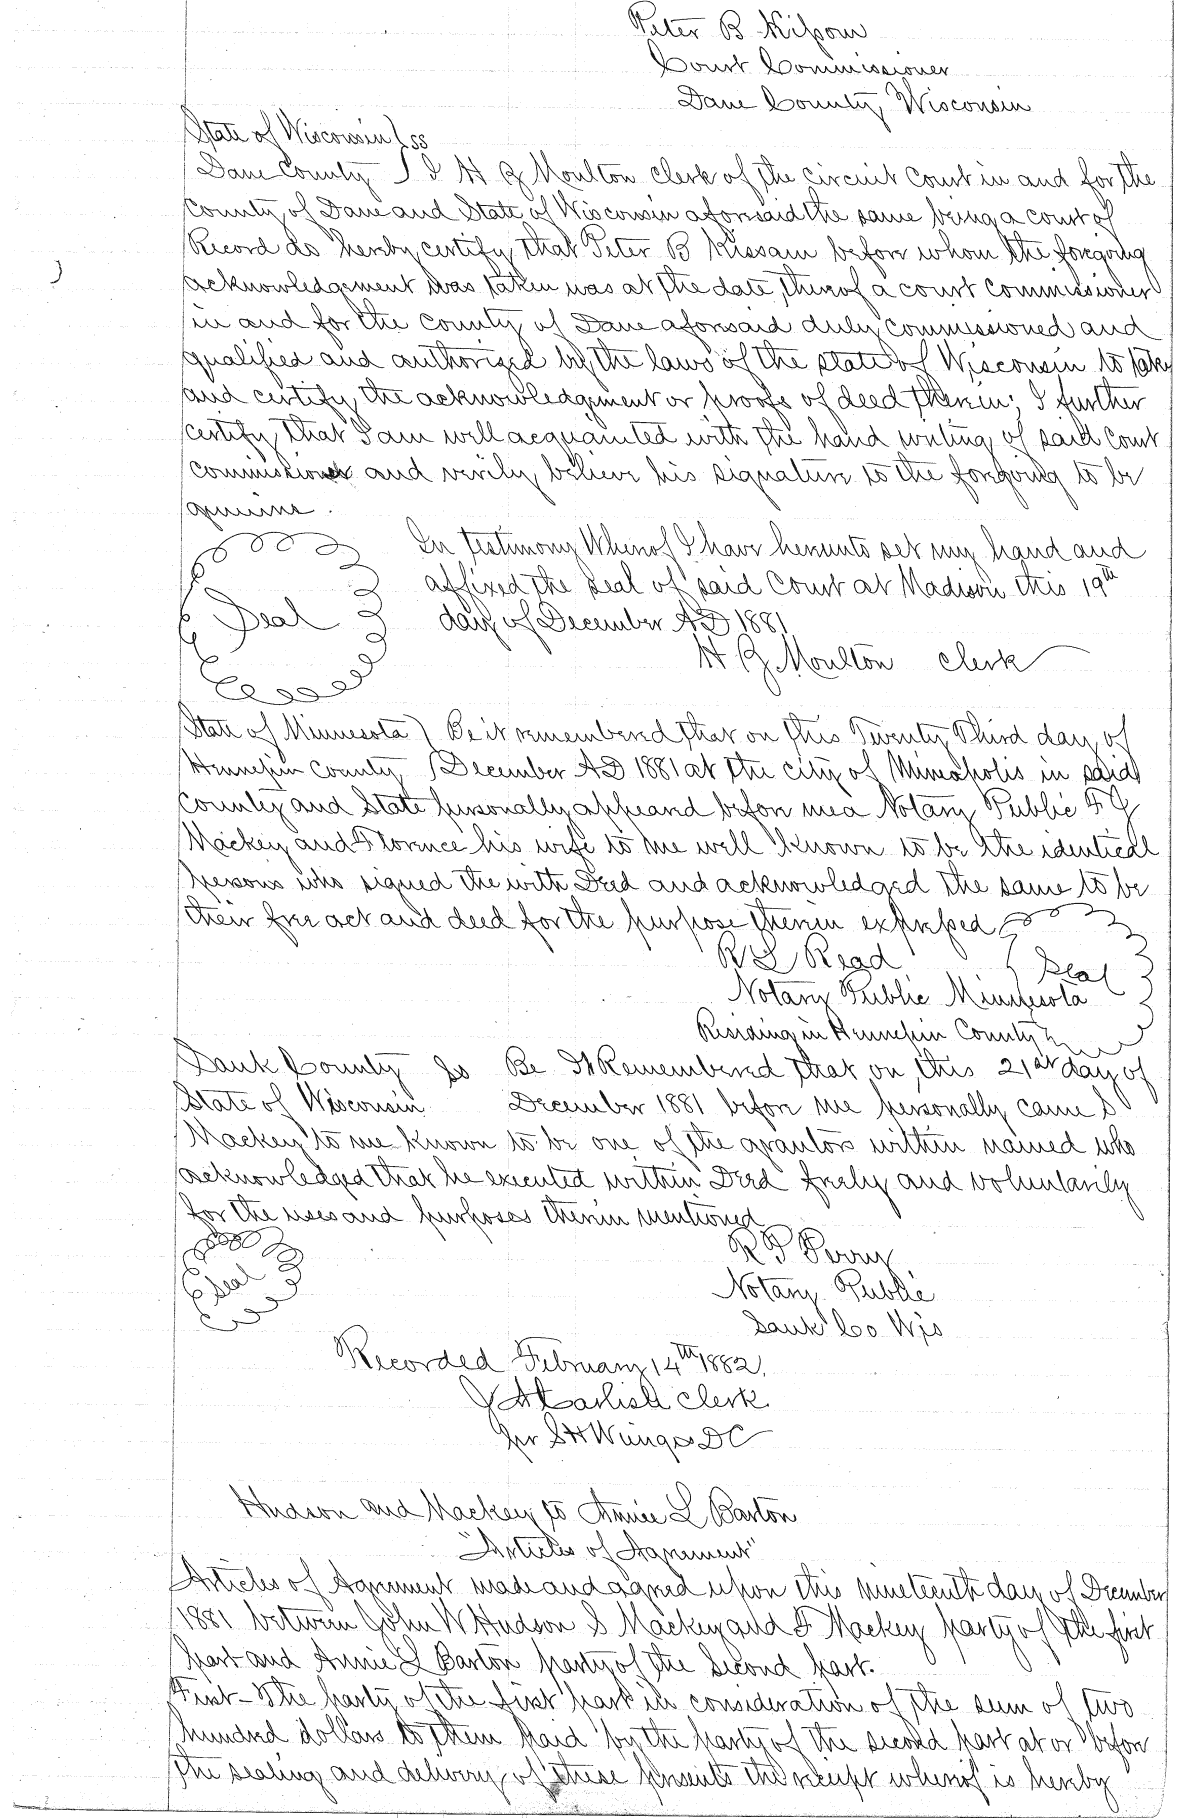 Peter B Kissam
Court Commissioner
Dane County, Wisconsin
State of Wisconsin } ss
Dane County } I H G Moulton clerk of the circuit court in and for the
county of Dane and State of Wisconsin aforesaid the same being a court of
Record do hereby certify that Peter B Kissam before whom the foregoing
acknowledgement was taken was at the date thereof a court commissioner
in and for the county of Dane aforesaid duly commissioned and
qualified and authorized by the laws of the state of Wisconsin to take
and certify the acknowledgment or proofs of deed therein; I further
certify that I am well acquainted with the hand writing of said court
commissioner and verily believe his signature to the foregoing to be
genuine.
In testimony Whereof I have hereunto set my hand and
affixed the seal of said Court at Madison this 19th
Seal
day of December AD 1881
H G Moulton clerk
State of Minnesota } Be it remembered that on this Twenty Third day of
Hennepin County } December AD 1881 at the city of Mineapolis in said
County and State personally appeard before me a Notary Public F G
Mackey and Florence his wife to me well known to be the identical
persons who signed the with Deed and acknowledged the same to be
their free act and deed for the purpose therein expressed
R L Read
Seal
Notary Public Minnesota
Residing in Hennepin County
Sauk County Ss Be It Remembered that on this 21st day of
State of Wisconsin December 1881 before me personally came S
Mackey to me known to be one of the grantors within named who
acknowledged that he executed within Deed freely and voluntarily
for the uses and purposes therin mentioned
R P Perry
Seal
Notary Public
Sauk Co Wis
Recorded February 14th 1882,
clerk
per S H DC
Hudson and Mackey to Annie L Barton
"Articles of Agreement"
Articles of Agreement made and agreed upon this nineteenth day of December
1881 between John W Hudson S Mackey and F Mackey party of the first
part and Annie L Barton party of the second part.
First - The party of the first part in consideration of the sum of two
hundred dollars to them paid by the party of the second part at or before
the sealing and delivery of these presents the receipt whereof is hereby